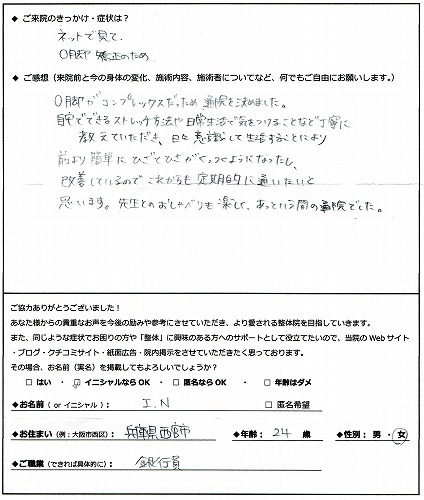 ◆ ご来院のきっかけ・症状は？
ネットで見て、
O脚 矯正のため
◆ ご感想（来院前と今の身体の変化、施術内容、施術者についてなど、何でもご自由にお願いします。）
O脚がコンプレックスだっため通院を決めました。
自宅でできるストレッチ方法や日常生活で気をつけることなど丁寧に
教えていただき、日々意識して生活することにより
前より簡単にひざとひざがくっつくようになったし、
改善しているのでこれからも定期的に通いたいと
思います。先生とのおしゃべりも楽しく、あっという間の通院でした。
ご協力ありがとうございました！
あなた様からの貴重なお声を今後の励みや参考にさせていただき、より愛される整体院を目指していきます。
また、同じような症状でお困りの方や「整体」に興味のある方へのサポートとして役立てたいので、当院のWebサイト
・ブログ・クチコミサイト・紙面広告・院内掲示をさせていただきたく思っております。
その場合、お名前（実名）を掲載してもよろしいでしょうか？
□ はい ・ ☑ イニシャルなら OK ・ □ 匿名なら OK ・ □ 年齢はダメ
◆お名前（ or イニシャル）： I.N □ 匿名希望
◆お住まい（例：大阪市西区）： 兵庫県西宮市 ◆年齢： 24 歳 ◆性別： 男 ・ 女
◆ご職業（できれば具体的に）： 銀行員